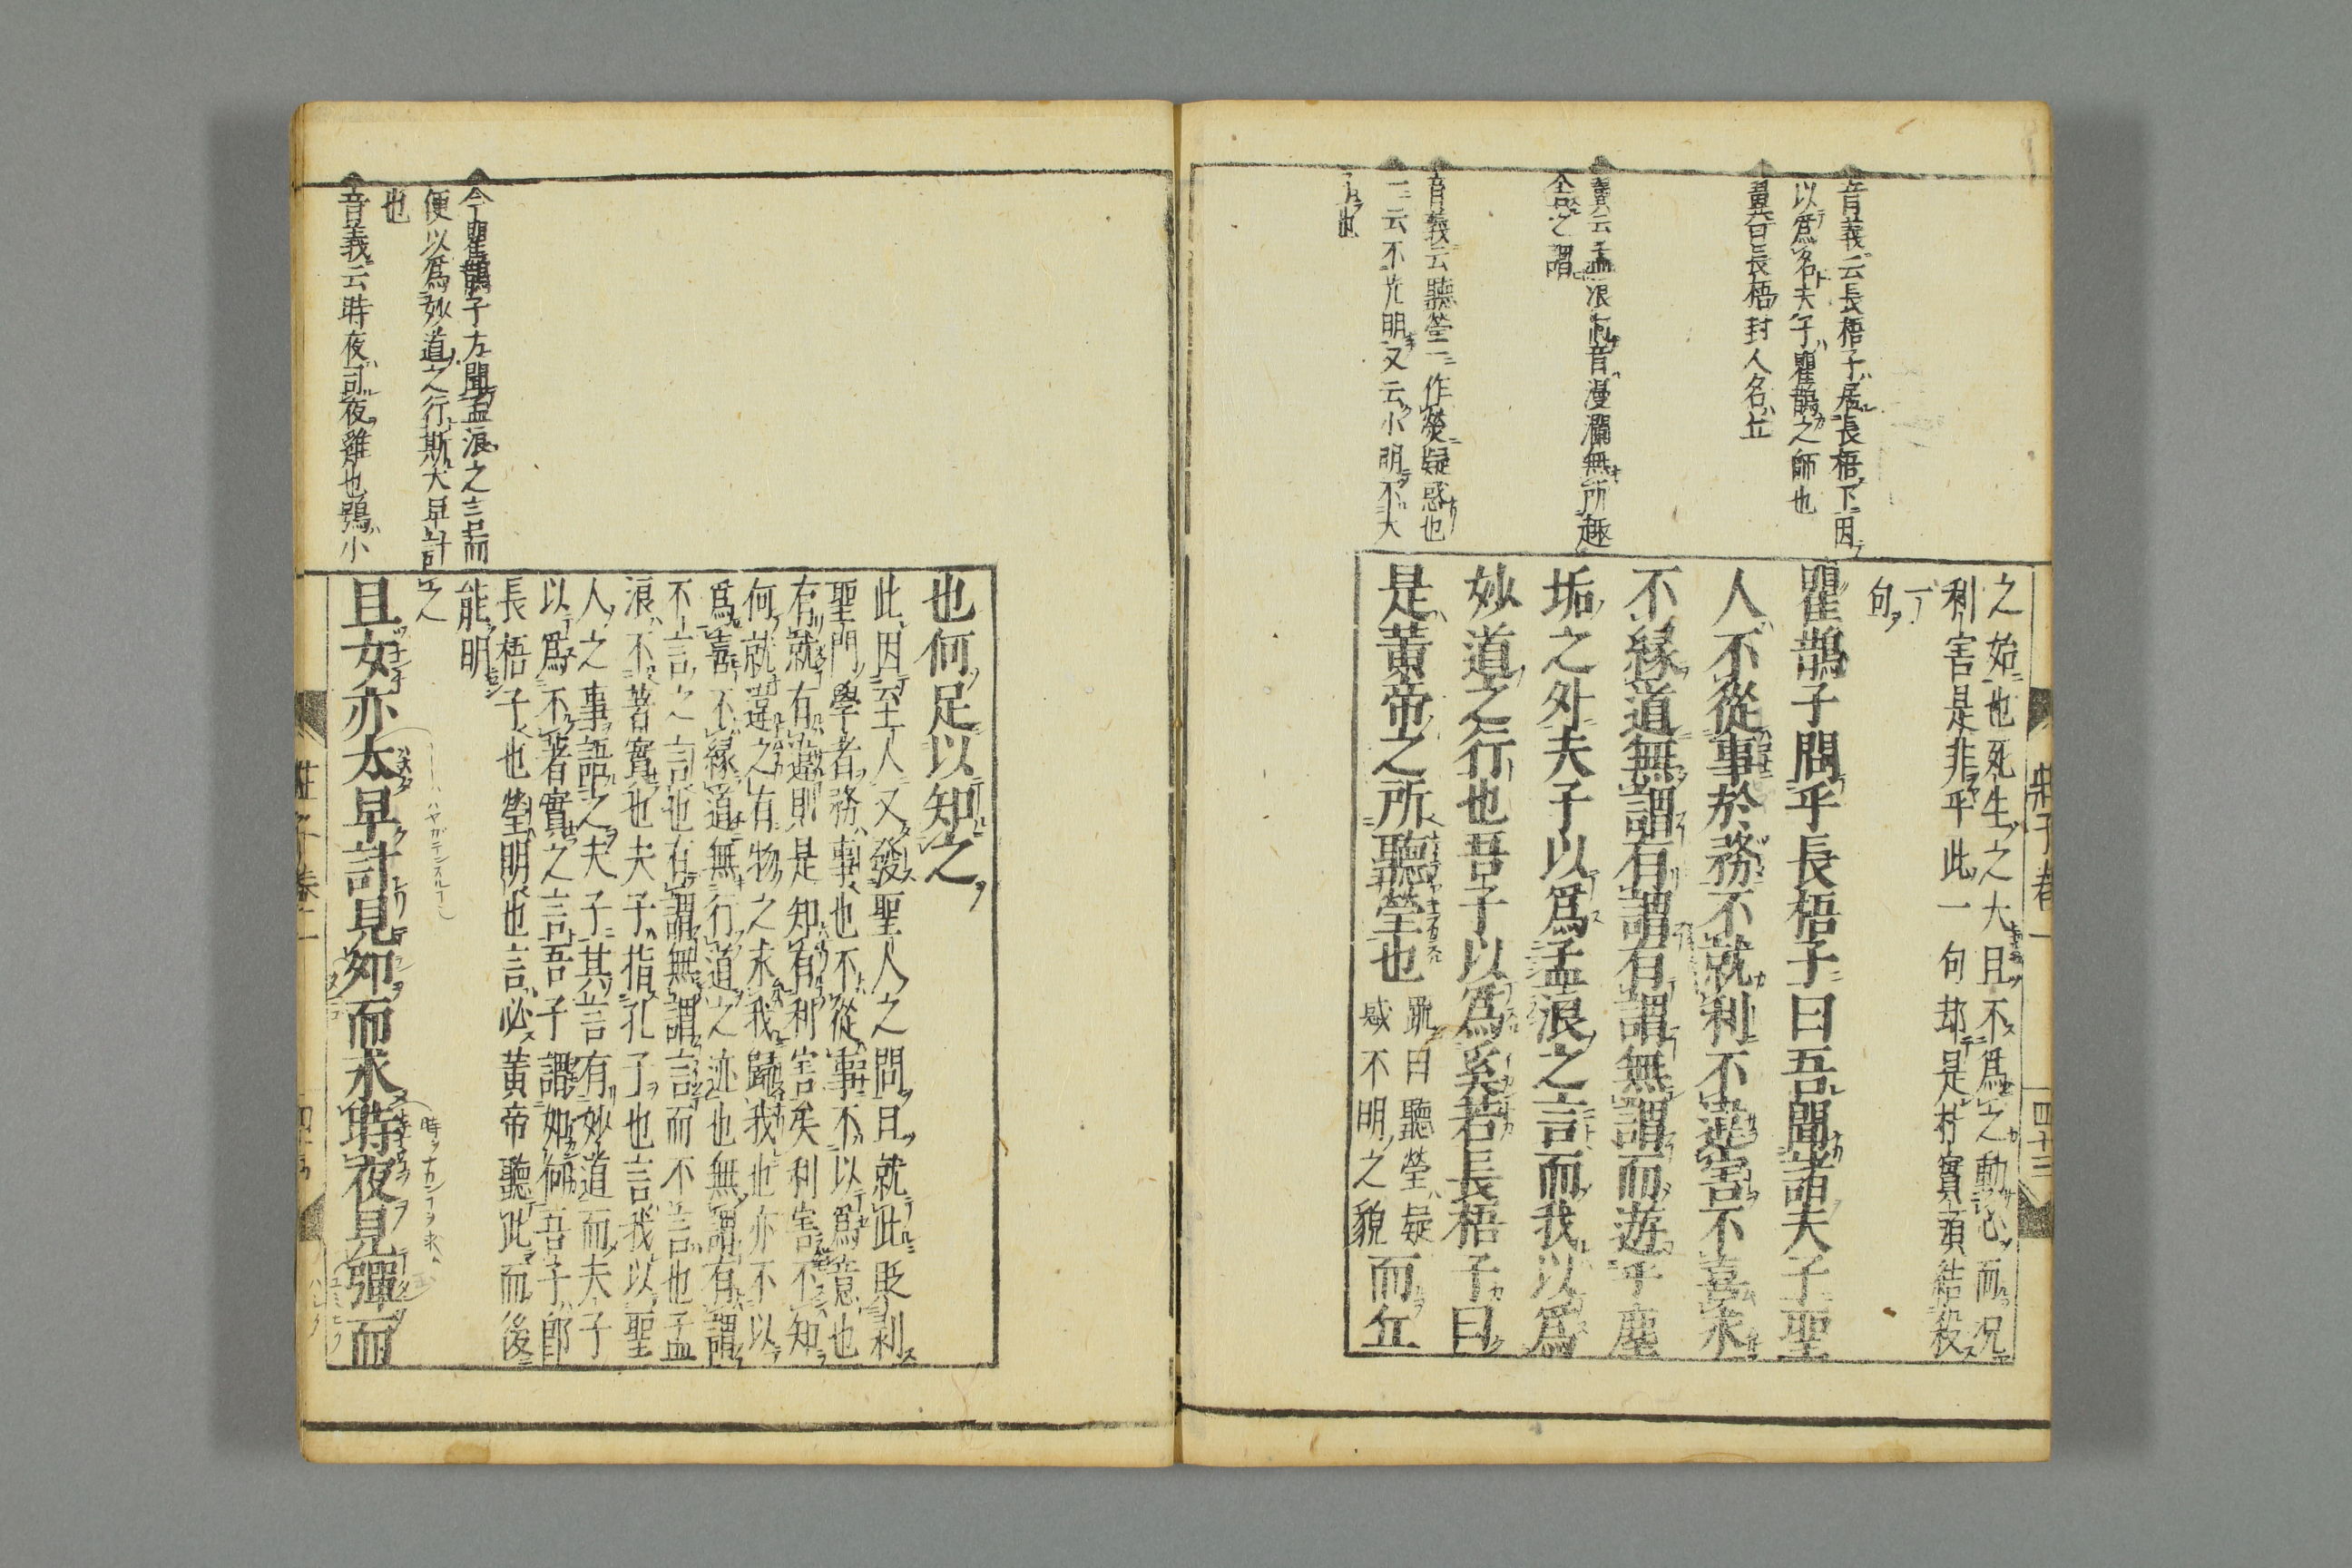 音義云長梧子居長梧下因
以爲名夫子瞿鵲之師也
翼云長梧封人名丘
翼云孟浪向音漫瀾無所趣
舎之謂
音義云聽瑩一作熒疑惑也
一云不光明又云小明不大
了也
莊子卷一
四十三
之始也死生之大且不爲之動心而況
利害是非乎此一句却是柱實頭結殺
一句
瞿鵲子問乎長梧子曰吾聞諸夫子聖
人不從事於務不就利不違害不喜求
不緣道無謂有謂有謂無謂而遊乎塵
垢之外夫子以爲孟浪之言而我以爲
妙道之行也吾子以爲奚若長梧子曰
是黃帝之所聽瑩也
聽瑩疑
惑不明之貌
而丘
也何足以知之
此因至人又發聖人之問且就此貶剥
聖門學者務事也不從事不以爲意也
有就有違則是知有利害矣利害不知
何就違之有物之求我歸我也亦不以
爲喜不緣道無行道之迹也無謂有謂
不言之言也有謂無謂言而不言也孟
浪不著實也夫子指孔子也言我以聖
人之事語之夫子其言有妙道而夫子
以爲不著實之言吾子謂如何吾子即
長梧子也瑩明也言必黃帝聽此而後
能明之
且女亦大早計見卵而求時夜見彈而
今瞿鵲子方聞孟浪之言而
便以爲妙道之行斯大早計
也
音義云時夜司夜雞也鴞小